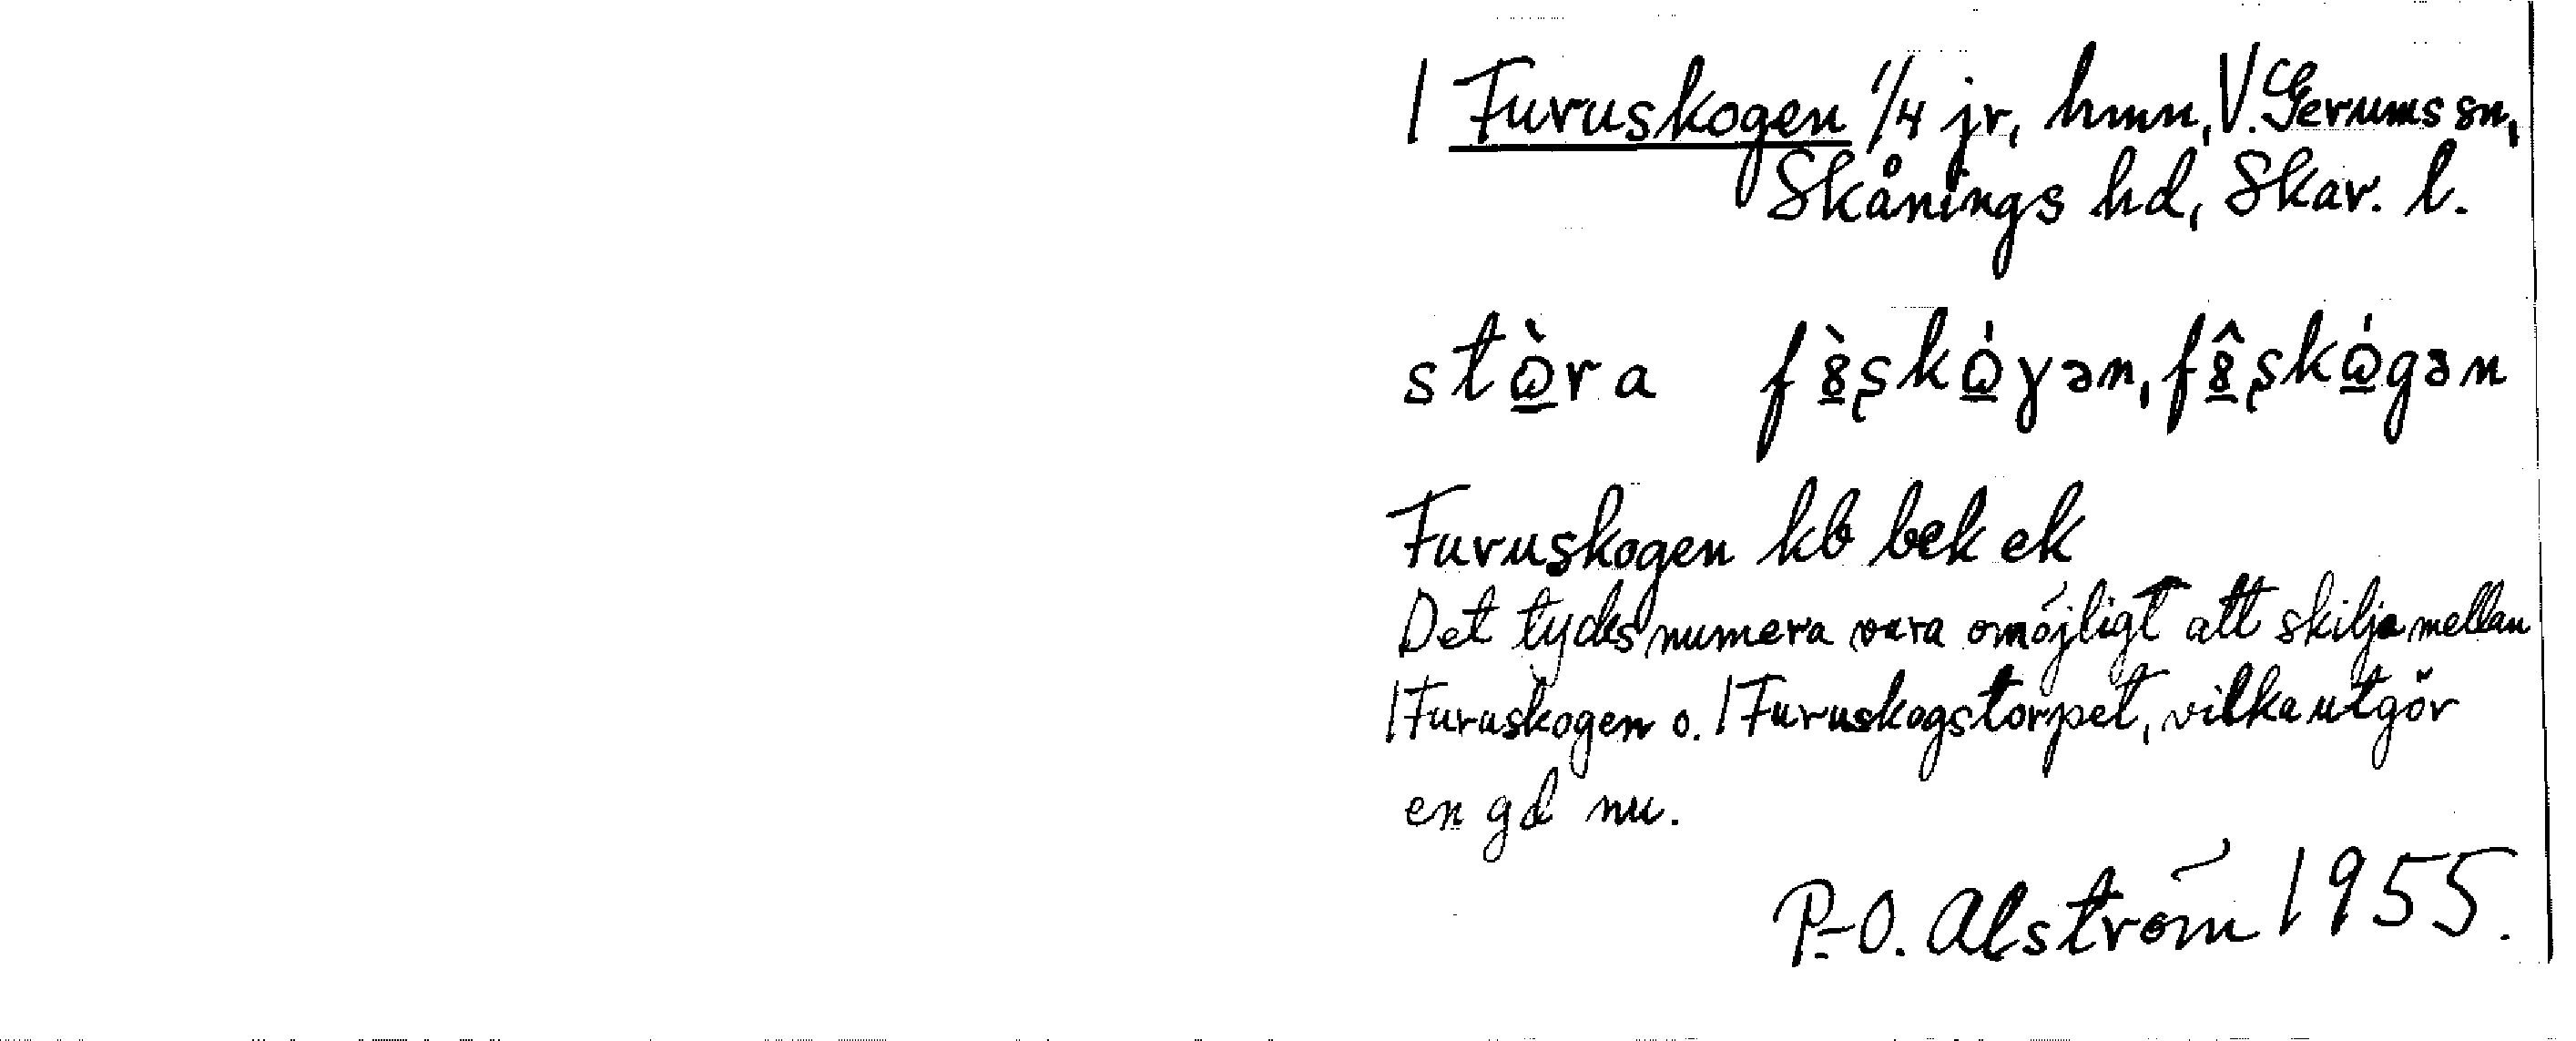 / Furuskogen 1/4 jr, hmn, V. Gerums sn,
Skånings hd, Skar. l.
stὼ̱ra f8̱̀ʂkώ̱γən, f8̱̂ʂkώ̱gən
Furuskogen kb bek ek
Det tycks numera vara omöjligt att skilja mellan
/ Furuskogen o. / Furuskogstorpet, vilka utgör
en gd nu.
P-O. Alström 1955.